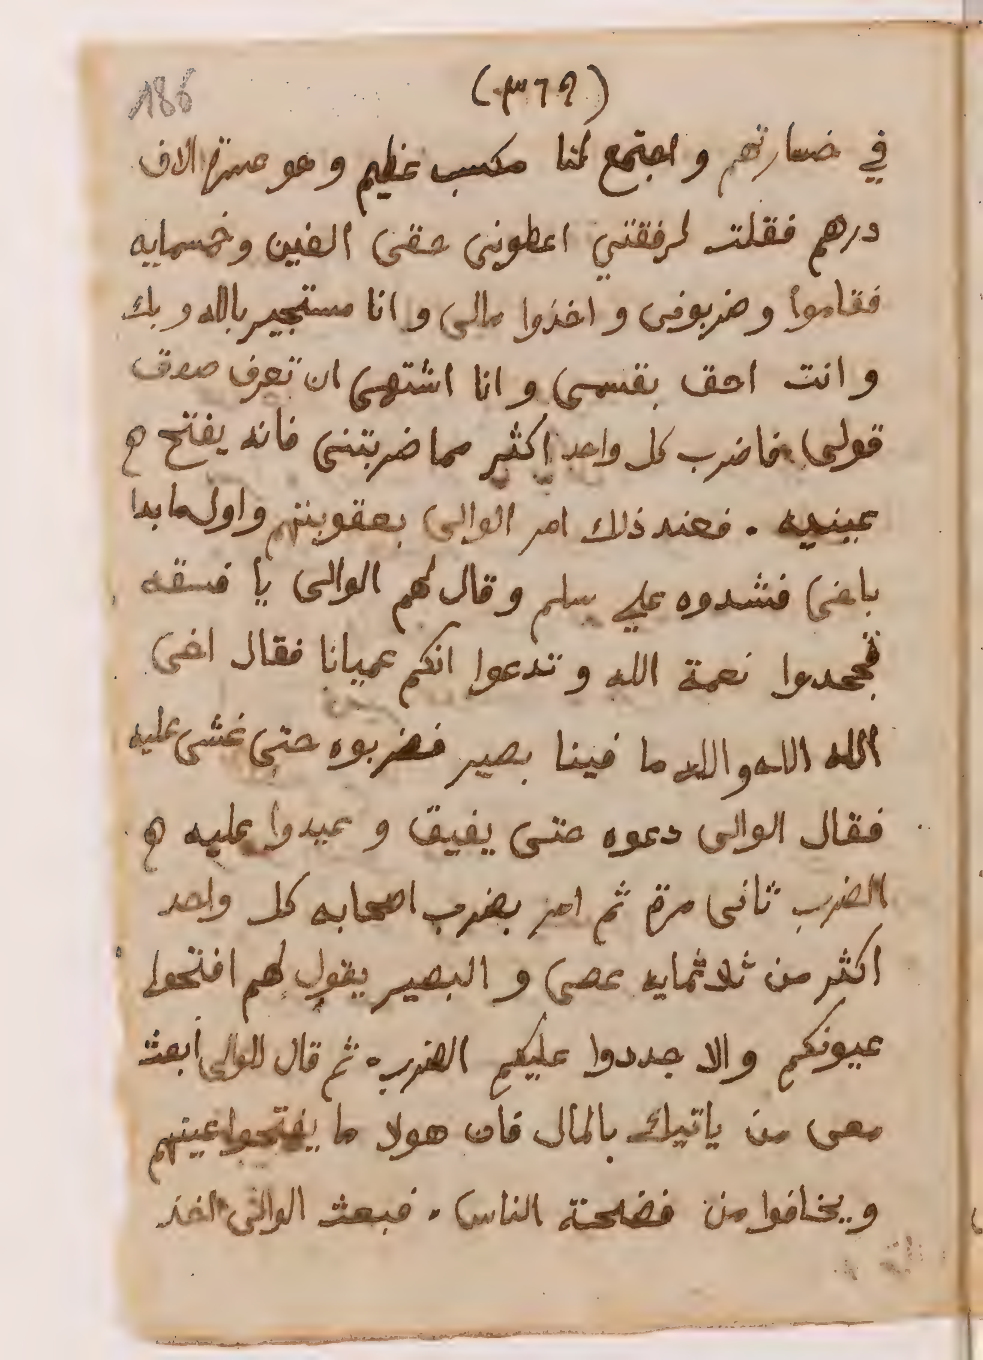 186
(٣٦٩)
في خسارتهم و اجتمع لنا مكسب عظيم و هو عشرة الاف
درهم فقلت لرفقتي اعطوني حقي الفين و خمسمايه
فقاموا و ضربوني و اخذوا مالي و انا مستجير بالله و بك
و انت احق بقسمي و انا اشتهي ان تعرف صدق
قولي فاضرب كل واحد اكثر مما ضربتني فانه يفتح
عينيه . فعند ذلك امر الوالي بعقوبتهم و اول ما بدا
باخي فشدوه علي سلم و قال لهم الوالي يا فسقه
تجحدوا نعمة الله و تدعوا انكم عميانا فقال اخي
الله الله والله ما فينا بصير فضربوه حتي غشي عليه
فقال الوالي دعوه حتي يفيق و عيدوا عليه
الضرب ثاني مرة ثم امر بضرب اصحابه كل واحد
اكثر من ثلاثمايه عصي و البصير يقول لهم افتحوا
عيونكم و الا جددوا عليكم الضرب . ثم قال للوالي ابعث
معي من ياتيك بالمال فان هولا ما يفتحوا عينهم
و يخافوا من فضحة الناس . فبعث الوالي اخذ